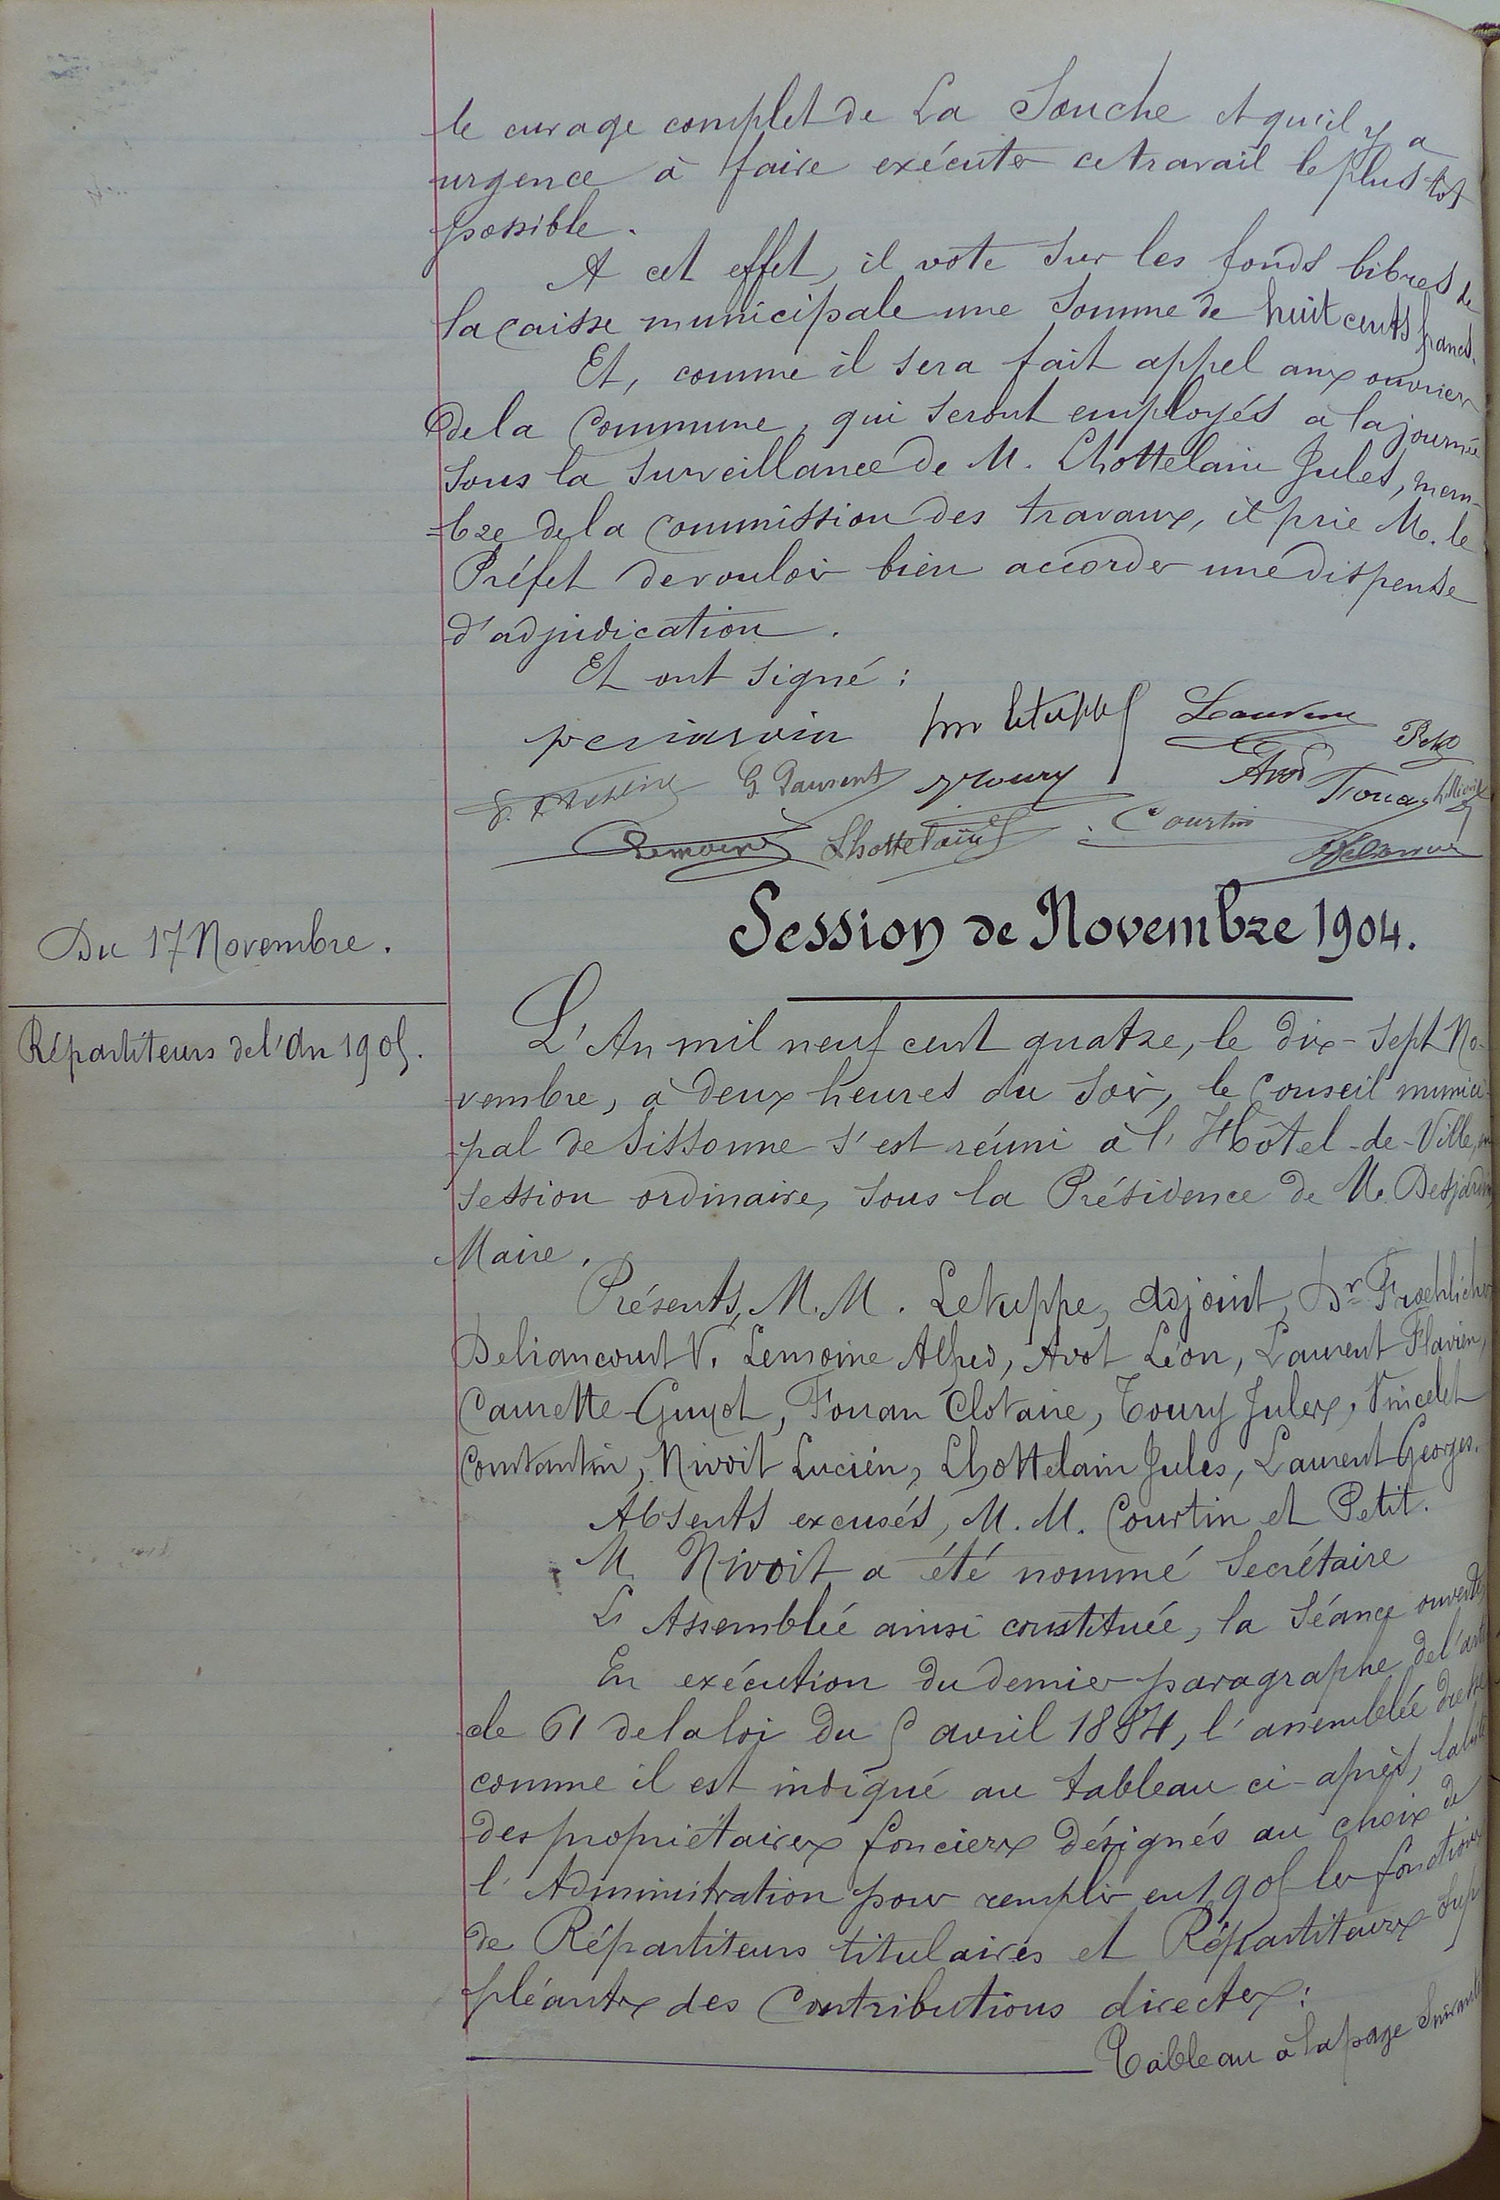 le curage complet de La Souche et qu'il y a
urgence à faire exécuter ce travail le plus tôt
possible.
A cet effet, il vote sur les fonds libres de
la caisse municipale une somme de huit cents francs.
Et, comme il sera fait appel aux ouvriers
de la Commune, qui seront employés à la journée
sous la surveillance de M. Lhottelain Jules, mem-
-bre de la Commission des travaux, il prie M. le
Préfet de vouloir bien accorder une dispense
d'adjudication.
Et ont signé :
Letuppe Petit
G. Laurent Toury Avot Fouan
Lemoine Lhottelain Courtin
Du 17 Novembre.
Session de Novembre 1904.
Répartiteurs de l'An 1905.
L'An mil neuf cent quatre, le dix-sept No-
vembre, à deux heures du soir, le Conseil munici-
pal de Sissonne s'est réuni à l'Hôtel-de-Ville, en
session ordinaire, sous la Présidence de M. Desjardins
Maire.
Présents, M.M. Letuppe, adjoint, Dr Froehlicher
Deliancourt V. Lemoine Alfred, Avot Léon, Laurent Flavien,
Caurette-Guyot, Fouan Clotaire, Toury Jules, Vincelet
Constantin, Nivoit Lucien, Lhottelain Jules, Laurent Georges.
Absents excusés, M.M. Courtin et Petit.
M. Nivoit a été nommé Secrétaire
L'Assemblée ainsi constituée, la Séance ouverte,
En exécution du dernier paragraphe de l'arti
cle 61 de la loi du 5 avril 1884, l'assemblée dresse
comme il est indiqué au tableau ci-après, la liste
des propriétaires fonciers désignés au choix de
l'Administration pour remplir en 1905 les fonctions
de Répartiteurs titulaires et Répartiteurs sup
pléants des Contributions directes :
Tableau à la page suivante